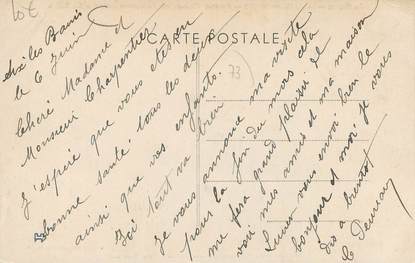 10€
CARTE POSTALE
73
Aix les Bains
le 6 Juin
Chère Madame et
Monsieur Charpentier
J'espère que vous etes en
bonne santé tous les deux
ainsi que vos enfants.
Ici tout va bien
Je vous annonce ma visite
pour la fin du mois cela
me fera grand plaisir de
voir mes amis et ma maison
vous envoi bien le
bonjour et moi je vous
dis a bientot